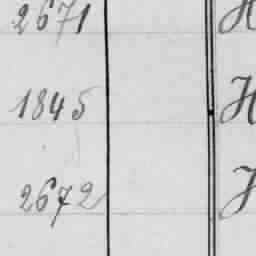 2671 H
1845 H
2672